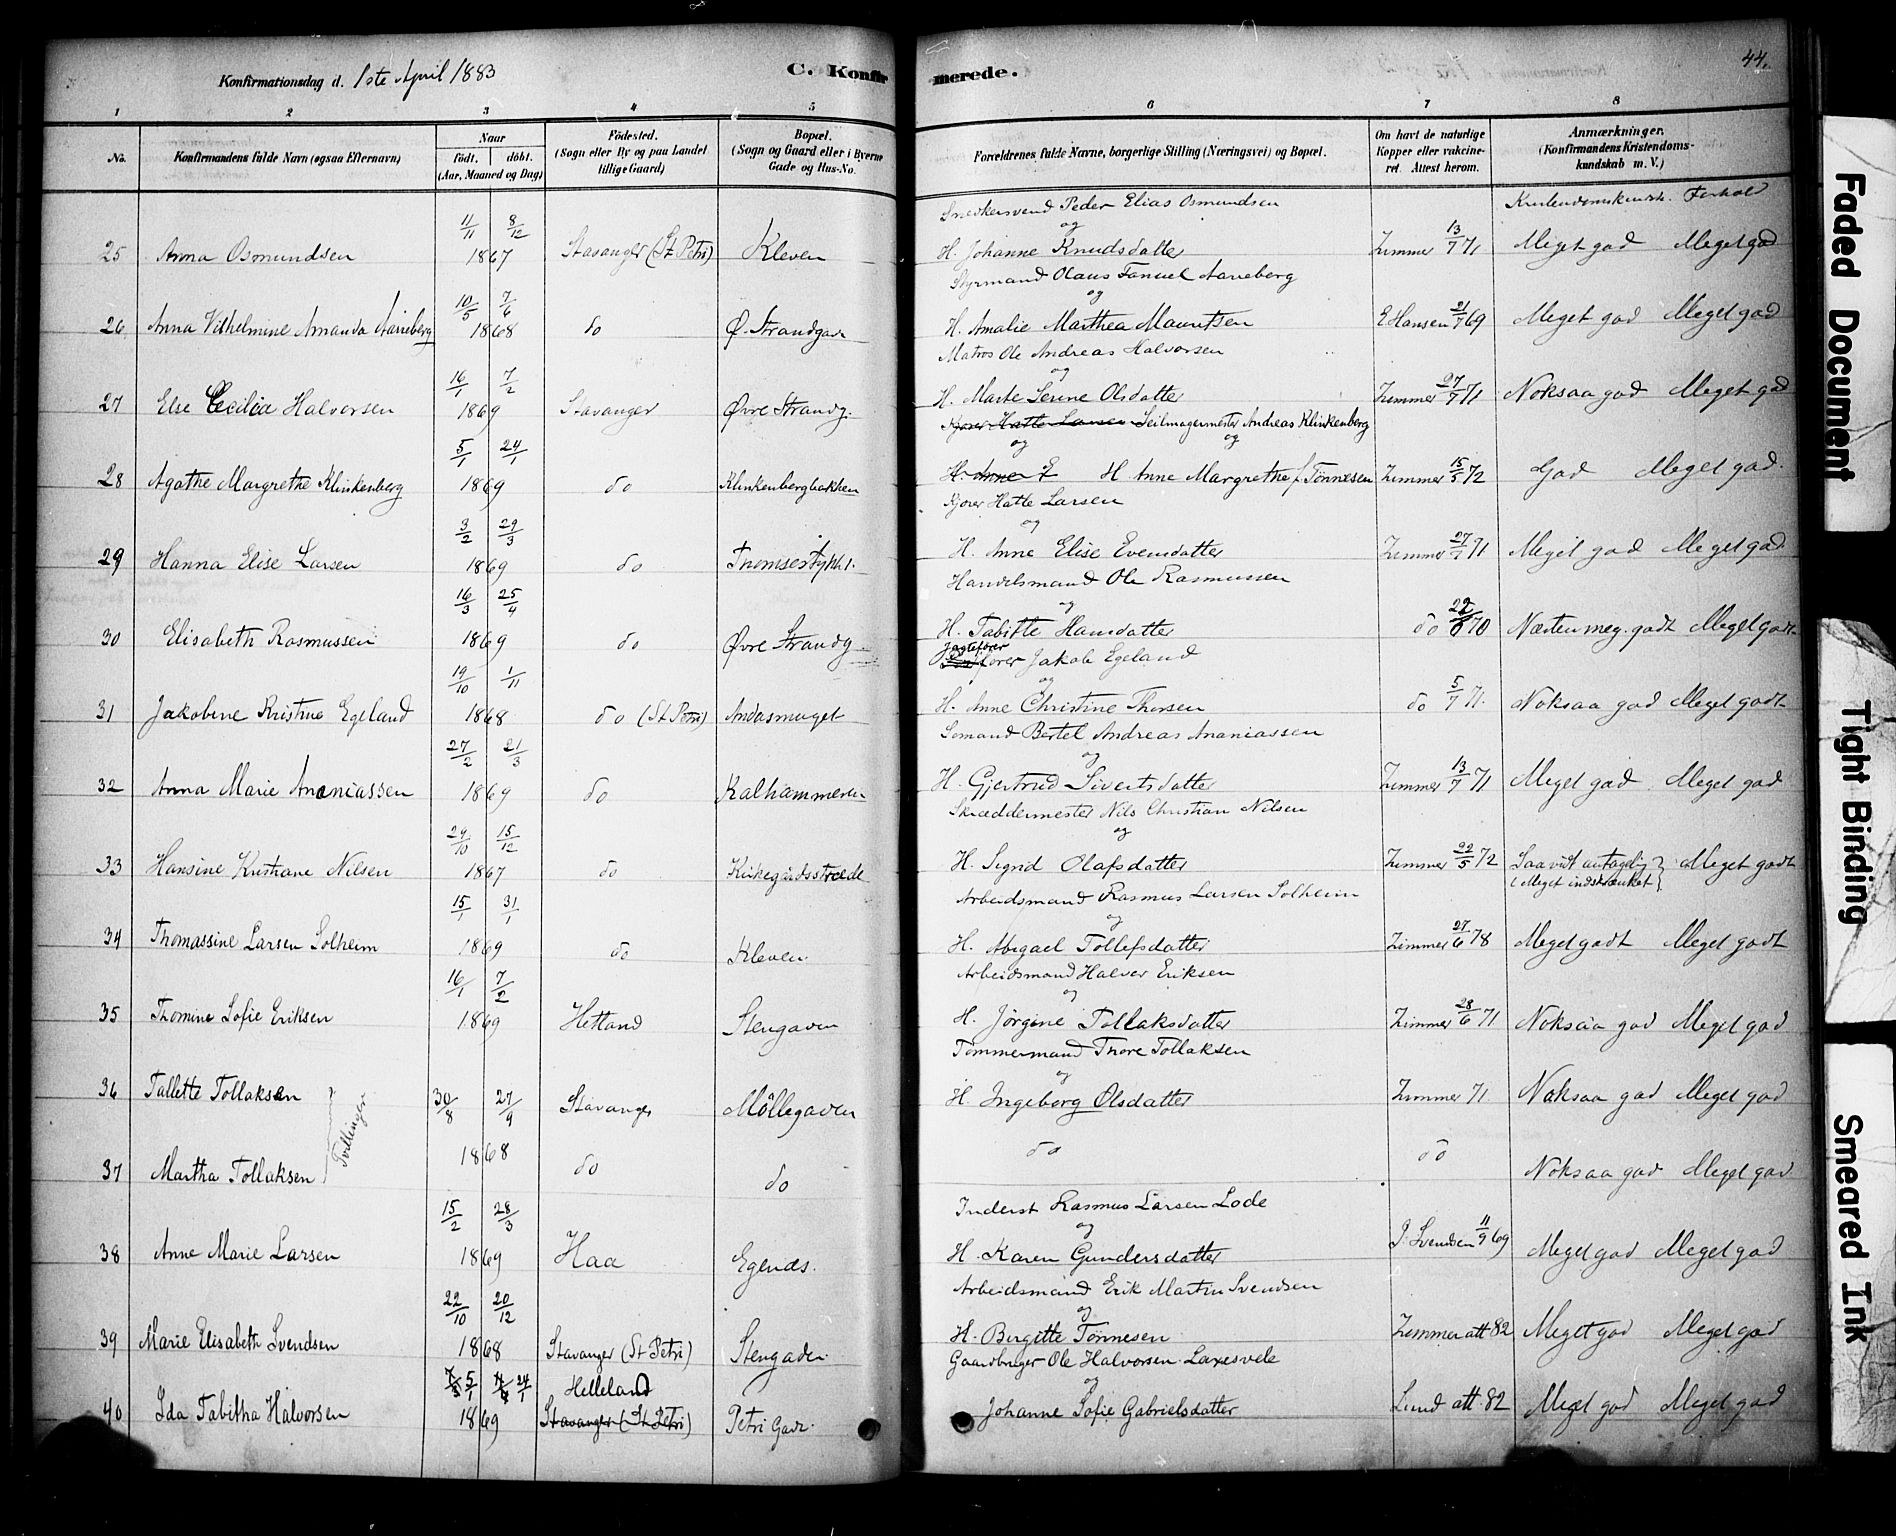 Konfirmationsdag d. 1ste April 1883
C. Konfirmerede.
44.
1 2 3 4 5 6 7 8
No.
Konfirmandens fulde Navn (ogsaa Efternavn)
Naar
födt. döbt.
(Aar, Maaned og Dag)
Födested.
(Sogn eller By og paa Landet
tillige Gaard)
Bopæl.
(Sogn og Gaard eller i Byerne
Gade og Hus-No.
Forældrenes fulde Navne, borgerlige Stilling (Næringsvei) og Bopæl.
Om havt de naturlige
Kopper eller vakcine-
ret. Attest herom.
Anmærkninger.
(Konfirmandens Kristendoms-
kundskab m. V.)
Kristendomskundsk. Forhold
Snedkersvend Peder Elias Osmundsen
og
25 Anna Osmundsen 11/11 8/12 1867 Stavanger (St Petri) Kleven H. Johanne Knudsdatter Zimmer 13/7 71 Meget god Meget god
Styrmand Olaus Fanuel Aareberg
og
26 Anna Vilhelmine Amanda Aareberg 10/5 7/6 1868 do Ø. Strandgade H. Amalie Marthea Mauritsen E Hansen 21/7 69 Meget god Meget god
Matros Ole Andreas Halvorsen
og
27 Else Cecilia Halvorsen 16/1 7/2 1869 Stavanger Øvre Strandg. H. Marte Serine Olsdatter Zimmer 27/7 71 Noksaa god Meget god
Kjører Hatle Larsen Seilmagermester Andreas Klinkenberg
og og
28 Agathe Margrethe Klinkenberg 5/1 24/1 1869 do Klinkenbergbakken H. Anne E H Anne Margrethe f. Tönnesen Zimmer 15/5 72 God Meget god.
Kjører Hatle Larsen
og
29 Hanna Elise Larsen 3/2 29/3 1869 do H. Anne Elise Evensdatter Zimmer 27/7 71 Meget god Meget god
Handelsmand Ole Rasmussen
og
30 Elisabeth Rasmussen 16/3 25/4 1869 do Øvre Strandg. H. Tabitte Hansdatter do 70 Næsten meg. godt Meget godt
Jagtefører
fører Jakob Egeland
og
31 Jakobine Kristine Egeland 19/10 1/11 1868 do (St Petri) Andasmuget H. Anne Christine Thorsen do 5/7 71. Noksaa god Meget godt
Sömand Bertel Andreas Ananiassen
og
32 Anna Marie Ananiassen 27/2 21/3 1869 do Kalhammeren H. Gjertrud Sivertsdatter Zimmer 13/7 71 Meget god Meget god
Skræddermester Nils Christian Nilsen
og
33 Hansine Kristiane Nilsen 29/10 15/12 1867 do Kirkegårdsstræde H. Signd Olafsdatter Zimmer 22/5 72 Saavidt antagelig Meget godt
(Meget indskrænket)
Arbeidsmand Rasmus Larsen Solheim
og
34 Thomassine Larsen Solheim 15/1 31/1 1869 do Kleven H. Abigael Tollefsdatter Zimmer 27/6 78 Meget godt Meget godt
Arbeidsmand Halvor Eriksen
og
35 Thomine Sofie Eriksen 16/1 7/2 1869 Hetland Stengaden H. Jörgine Tollaksdatter Zimmer 28/6 71 Noksaa god Meget god
Tömmermand Thore Tollaksen
og
36 Tallette Tollaksen 30/8 27/9 Stavanger Möllegaden H. Ingeborg Olsdatter Zimmer 71 Noksaa god Meget god
Tvillinger
37 Martha Tollaksen 1868 do do do do Noksaa god Meget god
Inderst Rasmus Larsen Lode
og
38 Anne Marie Larsen 15/2 28/3 1869 Haa Egends. H. Karen Gundersdatter J. Svendsen 11/9 69 Meget god Meget god
Arbeidsmand Erik Martin Svendsen
og
39 Marie Elisabeth Svendsen 22/10 20/12 1868 Stavanger (St Petri) Stengaden H. Birgitte Tönnesen Zimmer att 82 Meget god Meget god
Gaardbruger Ole Halvorsen Laxesvele
og
40 Ida Tabitha Halvorsen 5/1 24/1 1869 Helleland Stavanger (St Petri) Petri Gade. Johanne Sofie Gabrielsdatter Lund att. 82 Meget god Meget god
Faded Document
Tight Binding
Smeared Ink